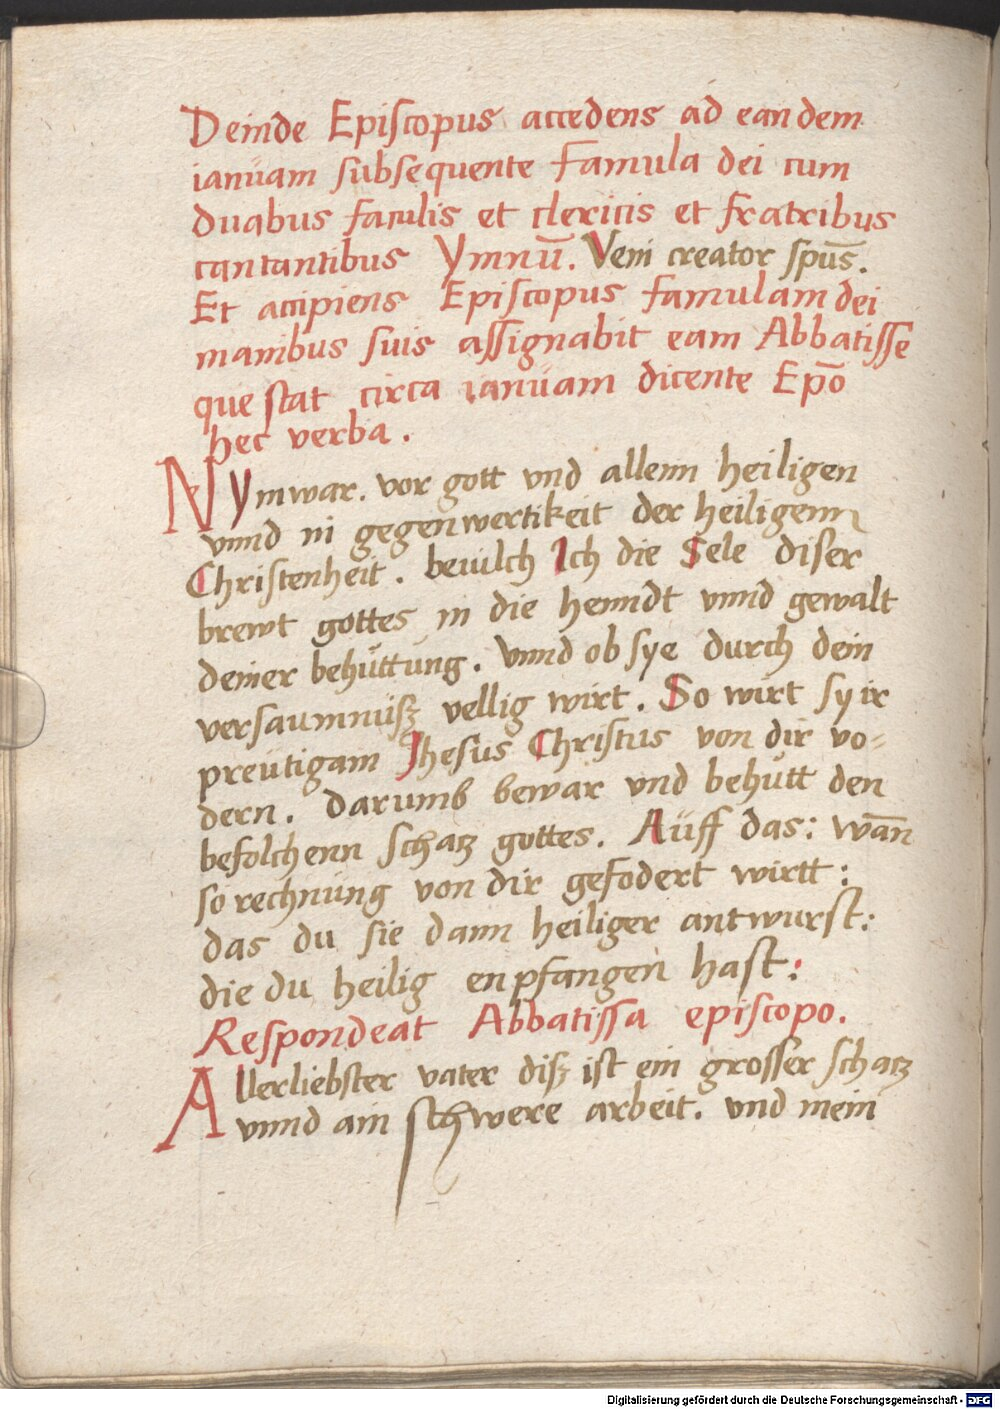 Deinde Episcopus accedens ad eandem
ianuam subsequente Famula dei cum
duabus faculis et clericis et fratribus
cantantibus Ymnū. Veni creator spūs.
Et accipiens Episcopus famulam dei
manibus suis assignabit eam Abbatisse
que stat circa ianuam dicente Epō
hec verba.
NYm war. vor gott vnd allenn heiligen
vnnd in gegenwertikeit der heiligenn
Christenheit. beuilch Ich die Sele diser
brewt gottes in die henndt vnnd gewalt
deiner behüttung. Vnnd ob sye durch dein
versaumnüß vellig wirt. So wirt sy ir
preütigam Jhesus Christus von dir vo=
dern. darumb bewar vnd behütt den
befolchenn schatz gottes. Auff das: wān
so rechnung von dir gefodert wirtt:
das du sie dann heiliger antwurst:
die du heilig enpfangen hast:
Respondeat Abbatissa episcopo.
Allerliebster vater diß ist ein grosser schatz
vnnd ain schwere arbeit. vnd mein
Digitalisierung gefördert durch die Deutsche Forschungsgemeinschaft - DFG